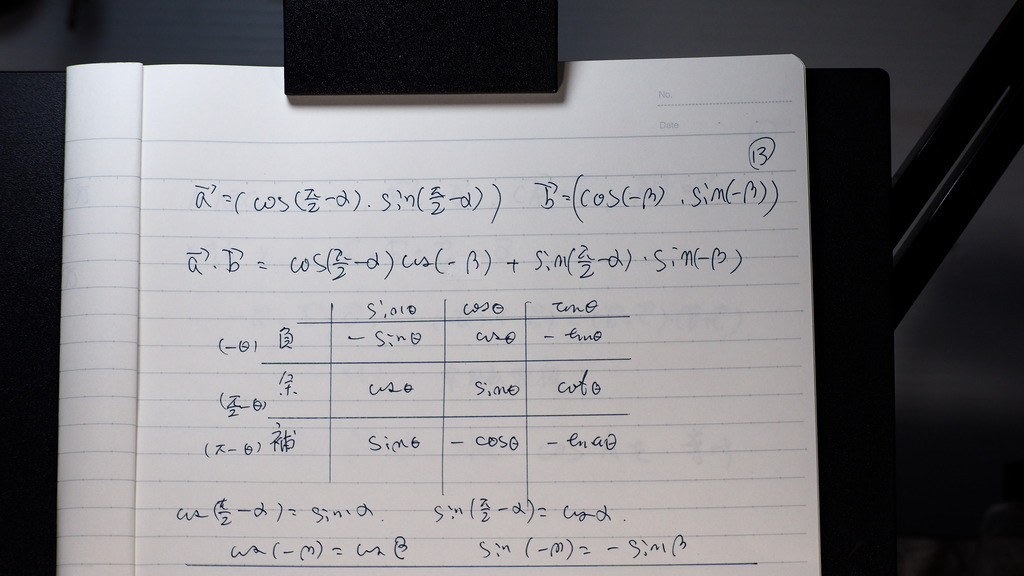 No.
Date
⑬
a⃗=(cos(π/2-α). sin(π/2-α)) b⃗=(cos(-β). sin(-β))
a⃗·b⃗ = cos(π/2-α)cos(-β) + sin(π/2-α)·sin(-β)
sinθ cosθ tanθ
(-θ) 負 - sinθ cosθ - tanθ
(π/2-θ) 余 cosθ sinθ cotθ
(π-θ) 補 sinθ - cosθ - tanθ
cos(π/2-α)= sinα. sin(π/2-α)= cosα.
cos(-β) = cosβ sin(-β) = - sinβ